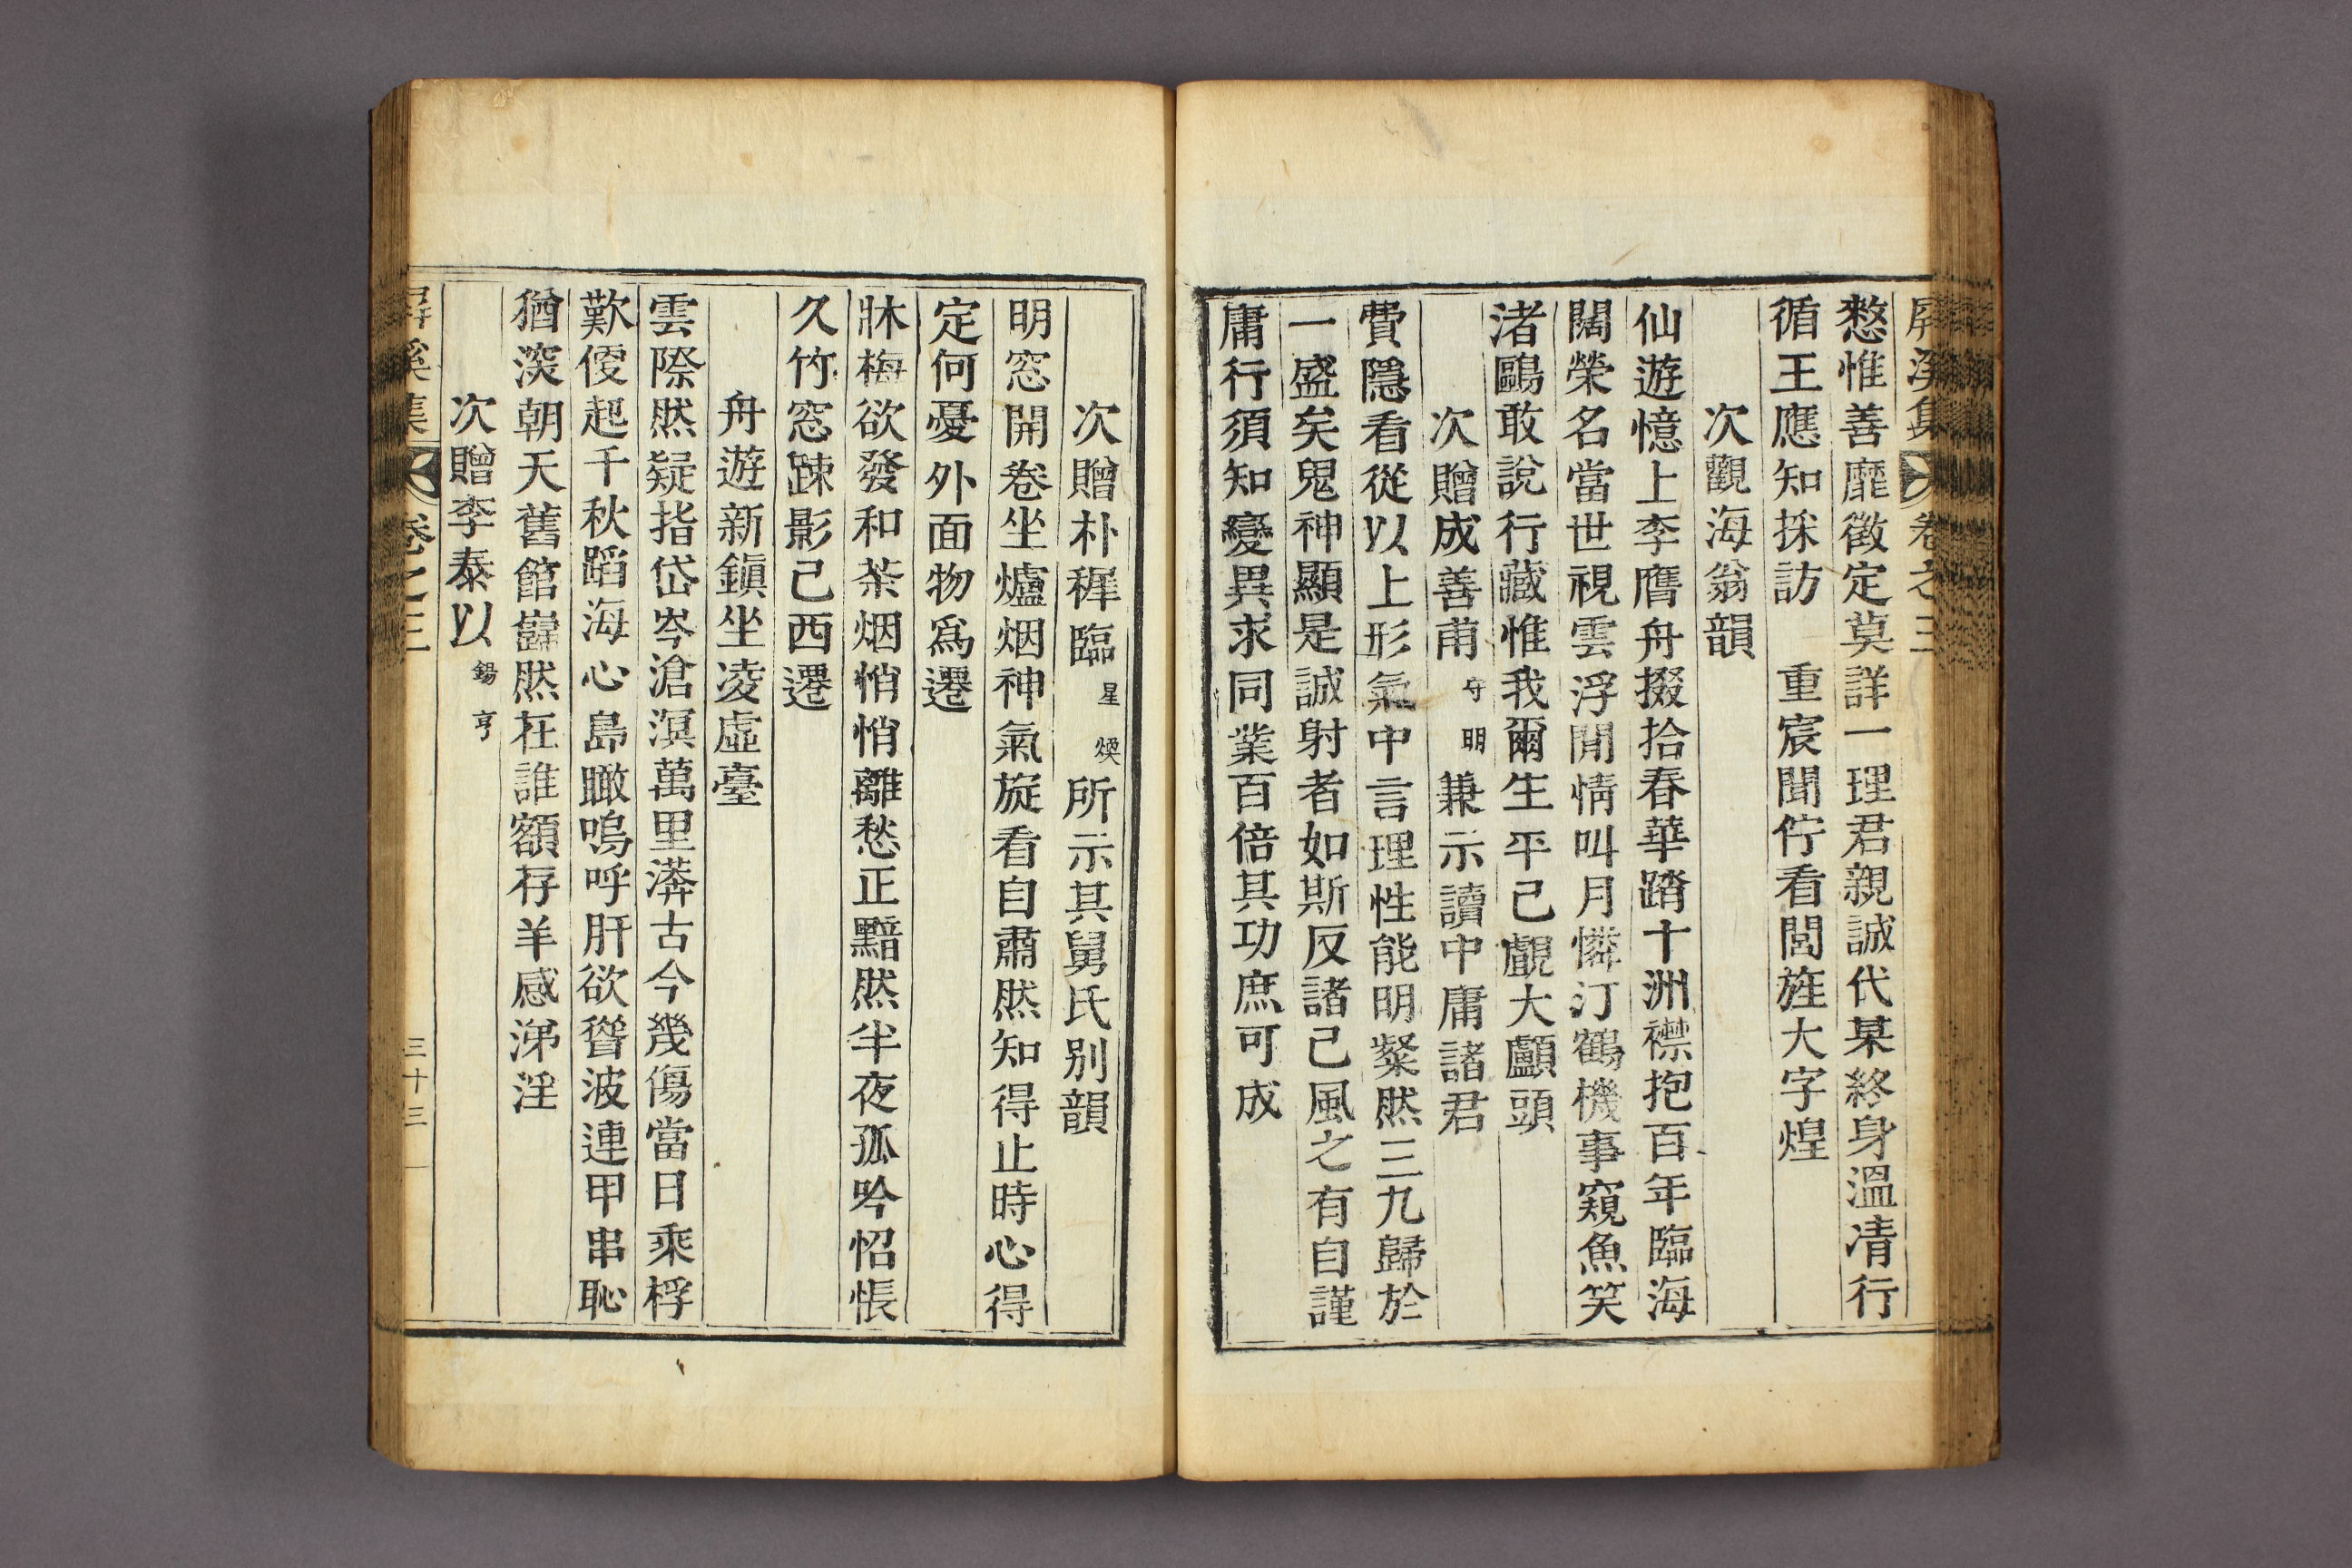 屛溪集 卷之三
憗惟善靡徵定莫詳一理君親誠代某終身溫凊行
循王應知採訪 重宸聞佇看閭旌大字煌
次觀海翁韻
仙遊憶上李膺舟掇拾春華踏十洲襟抱百年臨海
闊榮名當世視雲浮閒情叫月憐汀鶴機事窺魚笑
渚鷗敢說行藏惟我爾生平己覷大顱頭
次贈成善甫 守明 兼示讀中庸諸君
費隱看從以上形氣中言理性能明粲然三九歸於
一盛矣鬼神顯是誠射者如斯反諸己風之有自謹
庸行須知變異求同業百倍其功庶可成
次贈朴稺臨 星煥 所示其舅氏別韻
明窓開卷坐爐烟神氣旋看自肅然知得止時心得
定何憂外面物爲遷
牀梅欲發和茶烟悄悄離愁正黯然半夜孤吟怊悵
久竹窓踈影己西遷
舟遊新鎭坐凌虛臺
雲際然疑指岱岑滄溟萬里漭古今幾傷當日乘桴
歎僾起千秋蹈海心島瞰嗚呼肝欲聳波連甲串恥
猶深朝天舊館巋然在誰額存羊感涕淫
次贈李泰以 錫亨
屛溪集 卷之三 三十三